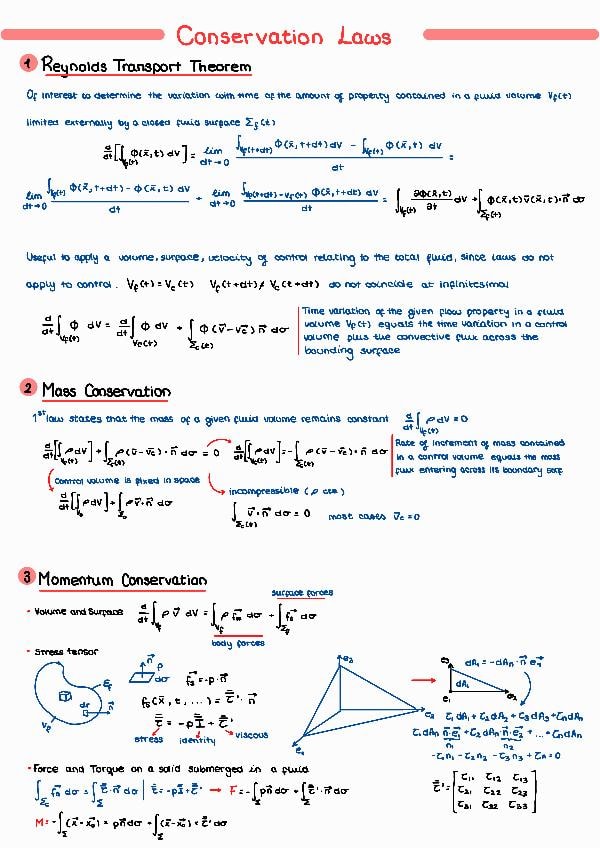 Conservation Laws
1 Reynolds Transport Theorem
Of interest to determine the variation with time of the amount of property contained in a fluid volume Vf(t)
limited externally by a closed fluid surface Σf(t)
d/dt[∫Vf(t) Φ(x̄,t) dV] = lim dt→0 (∫Vf(t+dt) Φ(x̄,t+dt) dV − ∫Vf(t) Φ(x̄,t) dV)/dt =
lim dt→0 (∫Vf(t) Φ(x̄,t+dt) − Φ(x̄,t) dV)/dt + lim dt→0 (∫Vf(t+dt)−Vf(t) Φ(x̄,t+dt) dV)/dt = ∫Vf(t) ∂Φ(x̄,t)/∂t dV + ∫Σf(t) Φ(x̄,t) v̄(x̄,t)·n̄ dσ
Useful to apply a volume, surface, velocity of control relating to the total fluid, since laws do not
apply to control. Vf(t) = Vc(t) Vf(t+dt) ≠ Vc(t+dt) do not coincide at infinitesimal
d/dt ∫Vf(t) Φ dV = d/dt ∫Vc(t) Φ dV + ∫Σc(t) Φ(v̄−v̄c)·n̄ dσ
Time variation of the given flow property in a fluid
volume Vf(t) equals the time variation in a control
volume plus the convective flux across the
bounding surface
2 Mass Conservation
1st law states that the mass of a given fluid volume remains constant d/dt ∫Vf(t) ρ dV = 0
d/dt[∫Vf(t) ρ dV] + ∫Σf(t) ρ(v̄−v̄c)·n̄ dσ = 0 d/dt[∫Vf(t) ρ dV] = −∫ ρ(v̄−v̄c)·n̄ dσ
Rate of increment of mass contained
in a control volume equals the mass
flux entering across its boundary surf
control volume is fixed in space
d/dt[∫ ρ dV] + ∫ ρ v̄·n̄ dσ
incompressible (ρ cte)
∫Σc(t) v̄·n̄ dσ = 0 most cases v̄c = 0
3 Momentum Conservation
surface forces
• Volume and Surface d/dt ∫Vf ρ v̄ dV = ∫Vf ρ fm dσ + ∫Σf fs dσ
body forces
• Stress tensor
Σf
Vf
dσ
n̄
n̄
p
dσ
fs = −p·n̄
fs(x̄, t, ....) = τ̄'·n̄
τ̄ = −p Ī + τ̄'
stress identity viscous
e3
e2
e1
e3
e1
e2
dA1
dA1 = −dAn·n̄ e1
τ1 dA1 + τ2 dA2 + τ3 dA3 + τn dAn
τ1 dAn n̄·e1 + τ2 dAn n̄·e2 + ... + τn dAn
n1 n2
−τ1n1 − τ2n2 − τ3n3 + τn = 0
• Force and Torque on a solid submerged in a fluid
∫Σc fs dσ = ∫Σ τ̄·n̄ dσ | τ̄ = −pĪ + τ̄' → F = −∫Σ pn̄ dσ + ∫Σ τ̄'·n̄ dσ
M = −∫Σ (x̄−x̄0) × pn̄ dσ + ∫Σ (x̄−x̄0) × τ̄' dσ
τ̄' = [τ11 τ12 τ13
τ21 τ22 τ23
τ31 τ32 τ33]